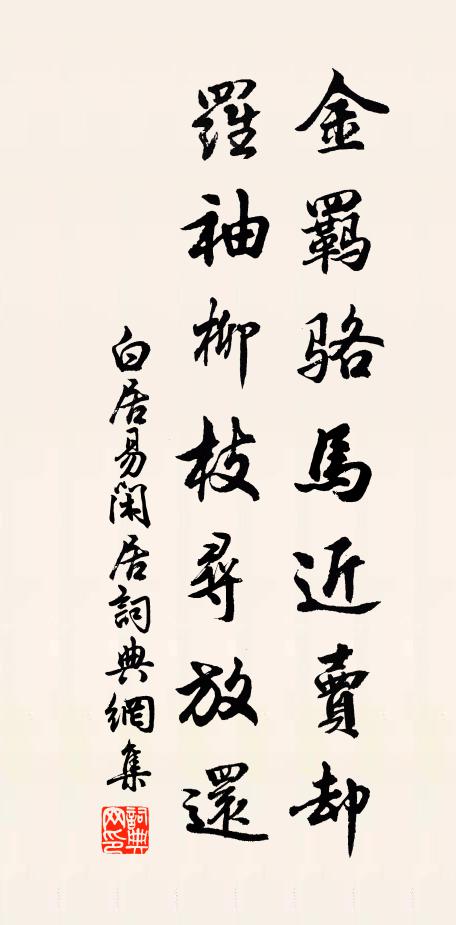 金羈駱馬近賣却
羅袖柳枝尋放還
白居易閑居詞典網集
詞典网印